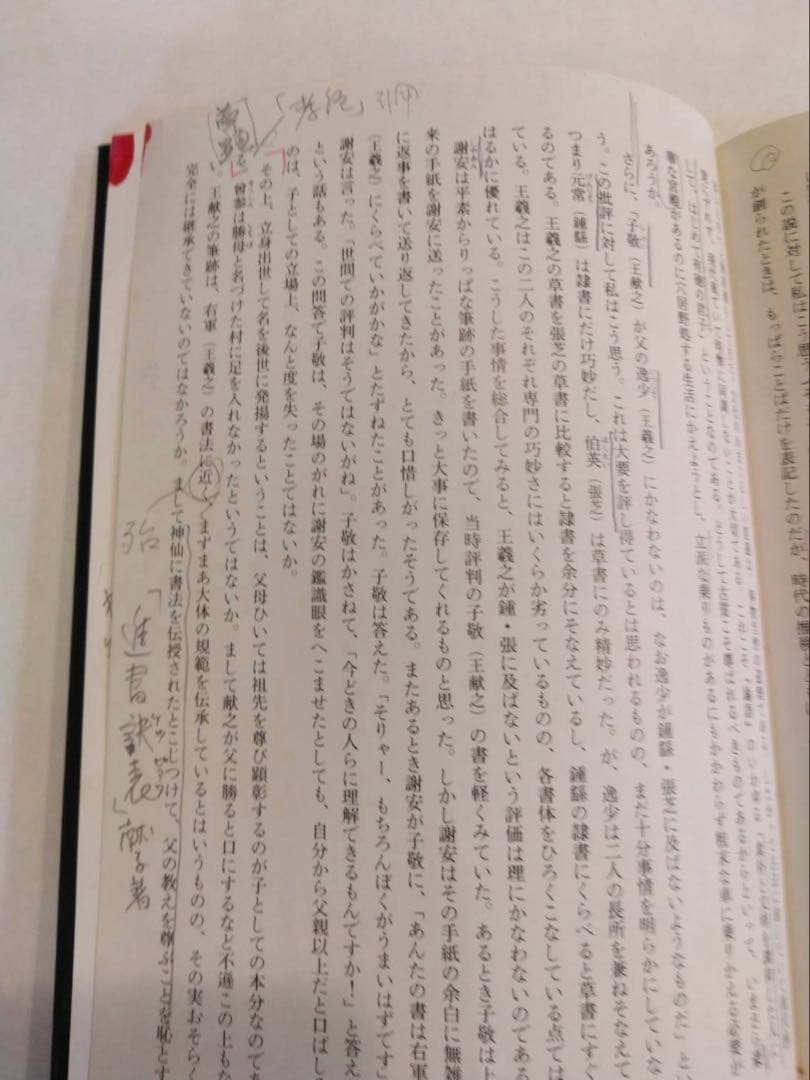 この説に対して私はこう思う。
が創られたときは、もっぱらことばだけを表記したのだが、時代の推移
署な宮殿があるのに穴居野処する生活にかえようとし、立派な乗りものがあるにもかかわらず粗末な車に乗りかえる必要が
あろうか。
さらに、「子敬（王献之）が父の逸少（王羲之）にかなわないのは、なお逸少が鍾繇・張芝に及ばないようなものだ」とい
う。この批評に対して私はこう思う。これは大要を評し得ているとは思われるものの、まだ十分事情を明らかにしていな
つまり元常（鍾繇）は隷書にだけ巧妙だし、伯英（張芝）は草書にのみ精妙だった。が、逸少は二人の長所を兼ねそなえて
るのである。王羲之の草書を張芝の草書に比較すると隷書を余分にそなえているし、鍾繇の隷書にくらべると草書にすぐ
ている。王羲之はこの二人のそれぞれ専門の巧妙さにはいくらか劣っているものの、各書体をひろくこなしている点では
はるかに優れている。こうした事情を総合してみると、王羲之が鍾・張に及ばないという評価は理にかなわないのである
謝安は平素からりっぱな筆跡の手紙を書いたので、当時評判の子敬（王献之）の書を軽くみていた。あるとき子敬は上
来の手紙を謝安に送ったことがあった。きっと大事に保存してくれるものと思った。しかし謝安はその手紙の余白に無雑
に返事を書いて送り返してきたから、とても口惜しがったそうである。またあるとき謝安が子敬に、「あんたの書は右軍
（王羲之）にくらべていかがかな」とたずねたことがあった。子敬は答えた。「そりゃー、もちろんぼくがうまいはずです」
謝安は言った。「世間での評判はそうではないがね」。子敬はかさねて、「今どきの人らに理解できるもんですか！」と答え
という話もある。この問答で子敬は、その場のがれに謝安の鑑識眼をへこませたとしても、自分から父親以上だと口ばし
のは、子としての立場上、なんと度を失ったことではないか。
その上、立身出世して名を後世に発揚するということは、父母ひいては祖先を尊び顕彰するのが子としての本分なので
る。曾参は勝母と名づけた村に足を入れなかったというではないか。まして献之が父に勝ると口にするなど不遜この上もな
い。王献之の筆跡は、右軍（王羲之）の書法に近く、まずまあ大体の規範を伝承しているとはいうものの、その実おそらく
完全には継承できていないのではなかろうか。まして神仙に書法を伝授されたとこじつけて、父の教えを尊ぶことを恥とす
「孝経」引用
殆
「進書訣表」献之著